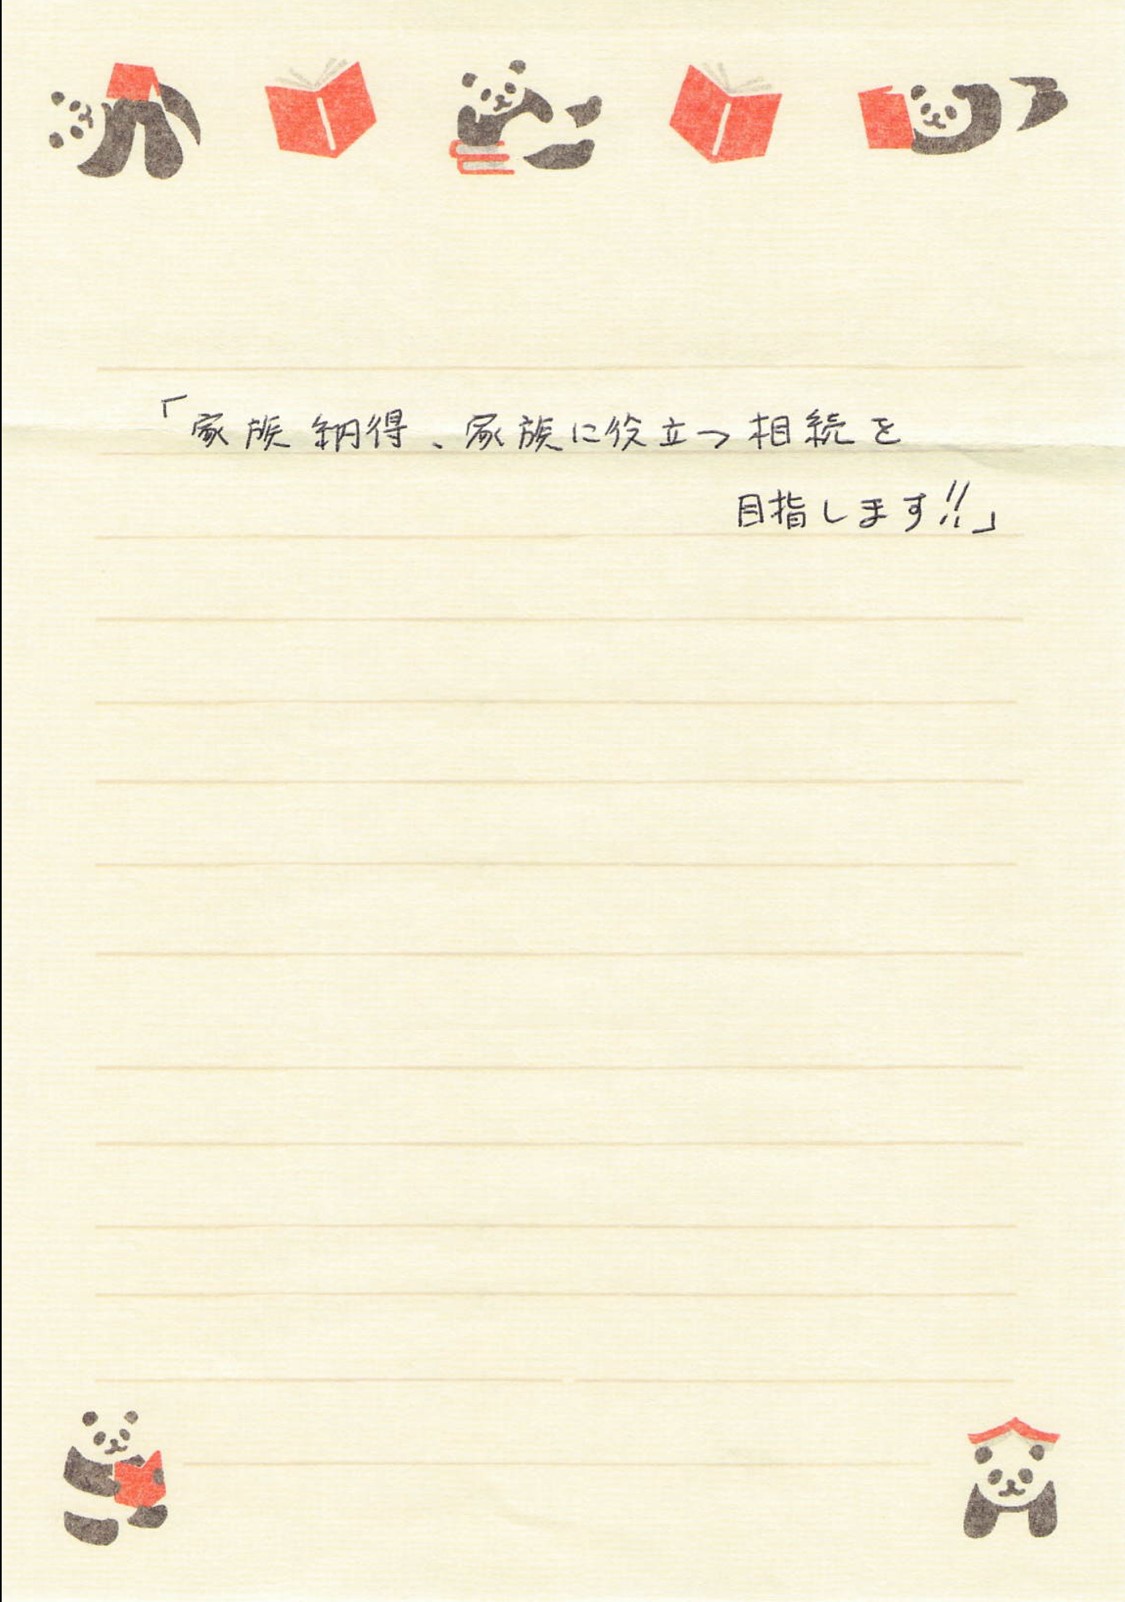 「家族納得、家族に役立つ相続を
目指します!!」